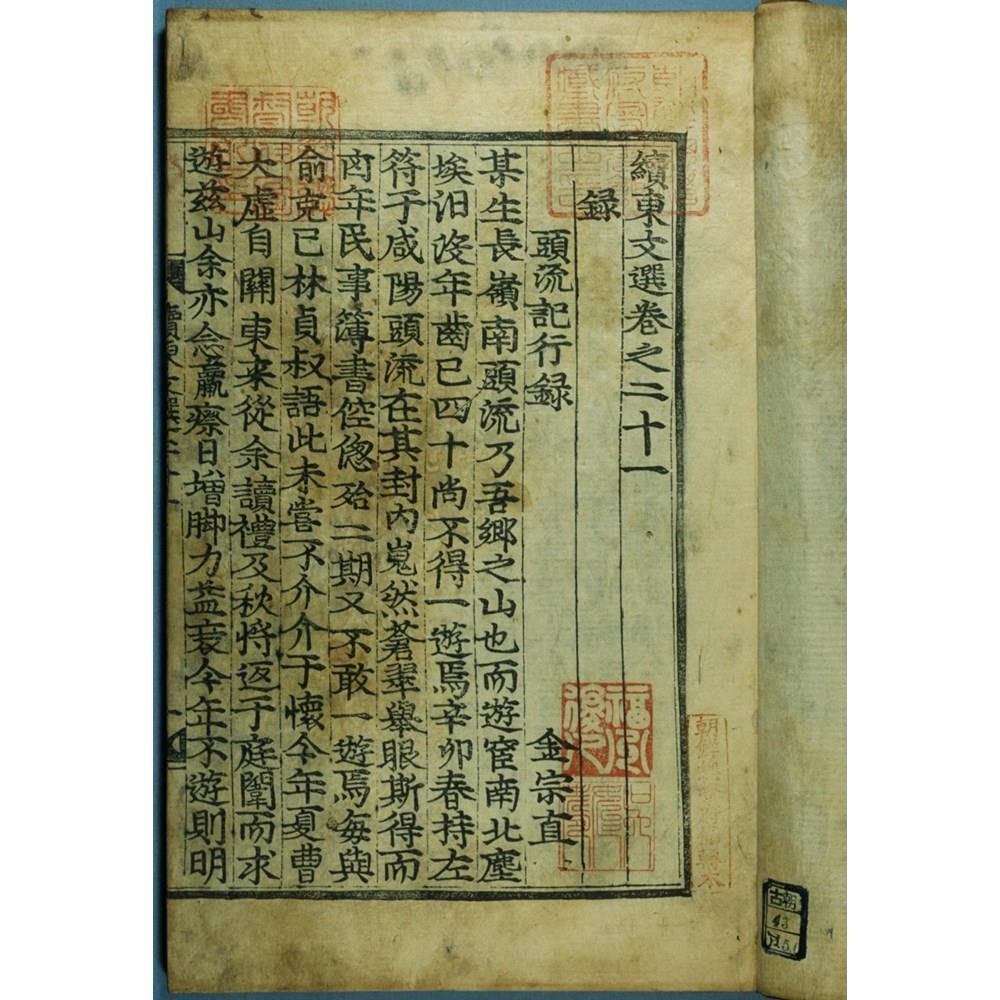 續東文選卷之二十一
録
頭流記行録
金宗直
某生長嶺南頭流乃吾鄉之山也而遊宦南北塵
埃汨沒年齒已四十尚不得一遊焉辛卯春持左
符于咸陽頭流在其封内嵬然蒼翠舉眼斯得而
凶年民事簿書倥偬殆二期又不敢一遊焉每與
俞克己林貞叔語此未嘗不介介于懷今年夏曹
大虛自關東来從余讀禮及秋将返于庭闈而求
遊兹山余亦念羸瘵日增脚力益衰今年不遊則明
續東文選二十一
一
古朝